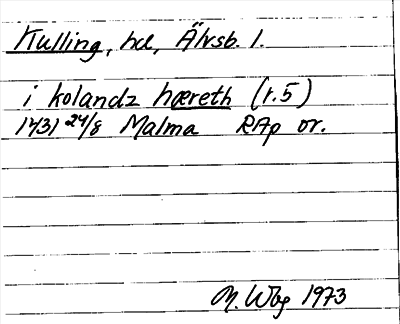 Kulling, hd, Älvsb. l.
i kolandz hæreth (r. 5)
1431 24/8 Malma RAp or.
M. Wbg 1973